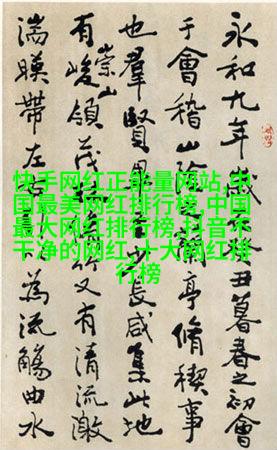 永和九年歲丑暮春之初會
于會稽山陰之蘭亭脩稧事
也羣賢畢至少長咸集此地
有崇山峻領茂林脩竹又有清流激
湍暎帶左右為流觴曲水
快手网红正能量网站,中
国最美网红排行榜,中国
最大网红排行榜,抖音不
干净的网红,十大网红排
行榜